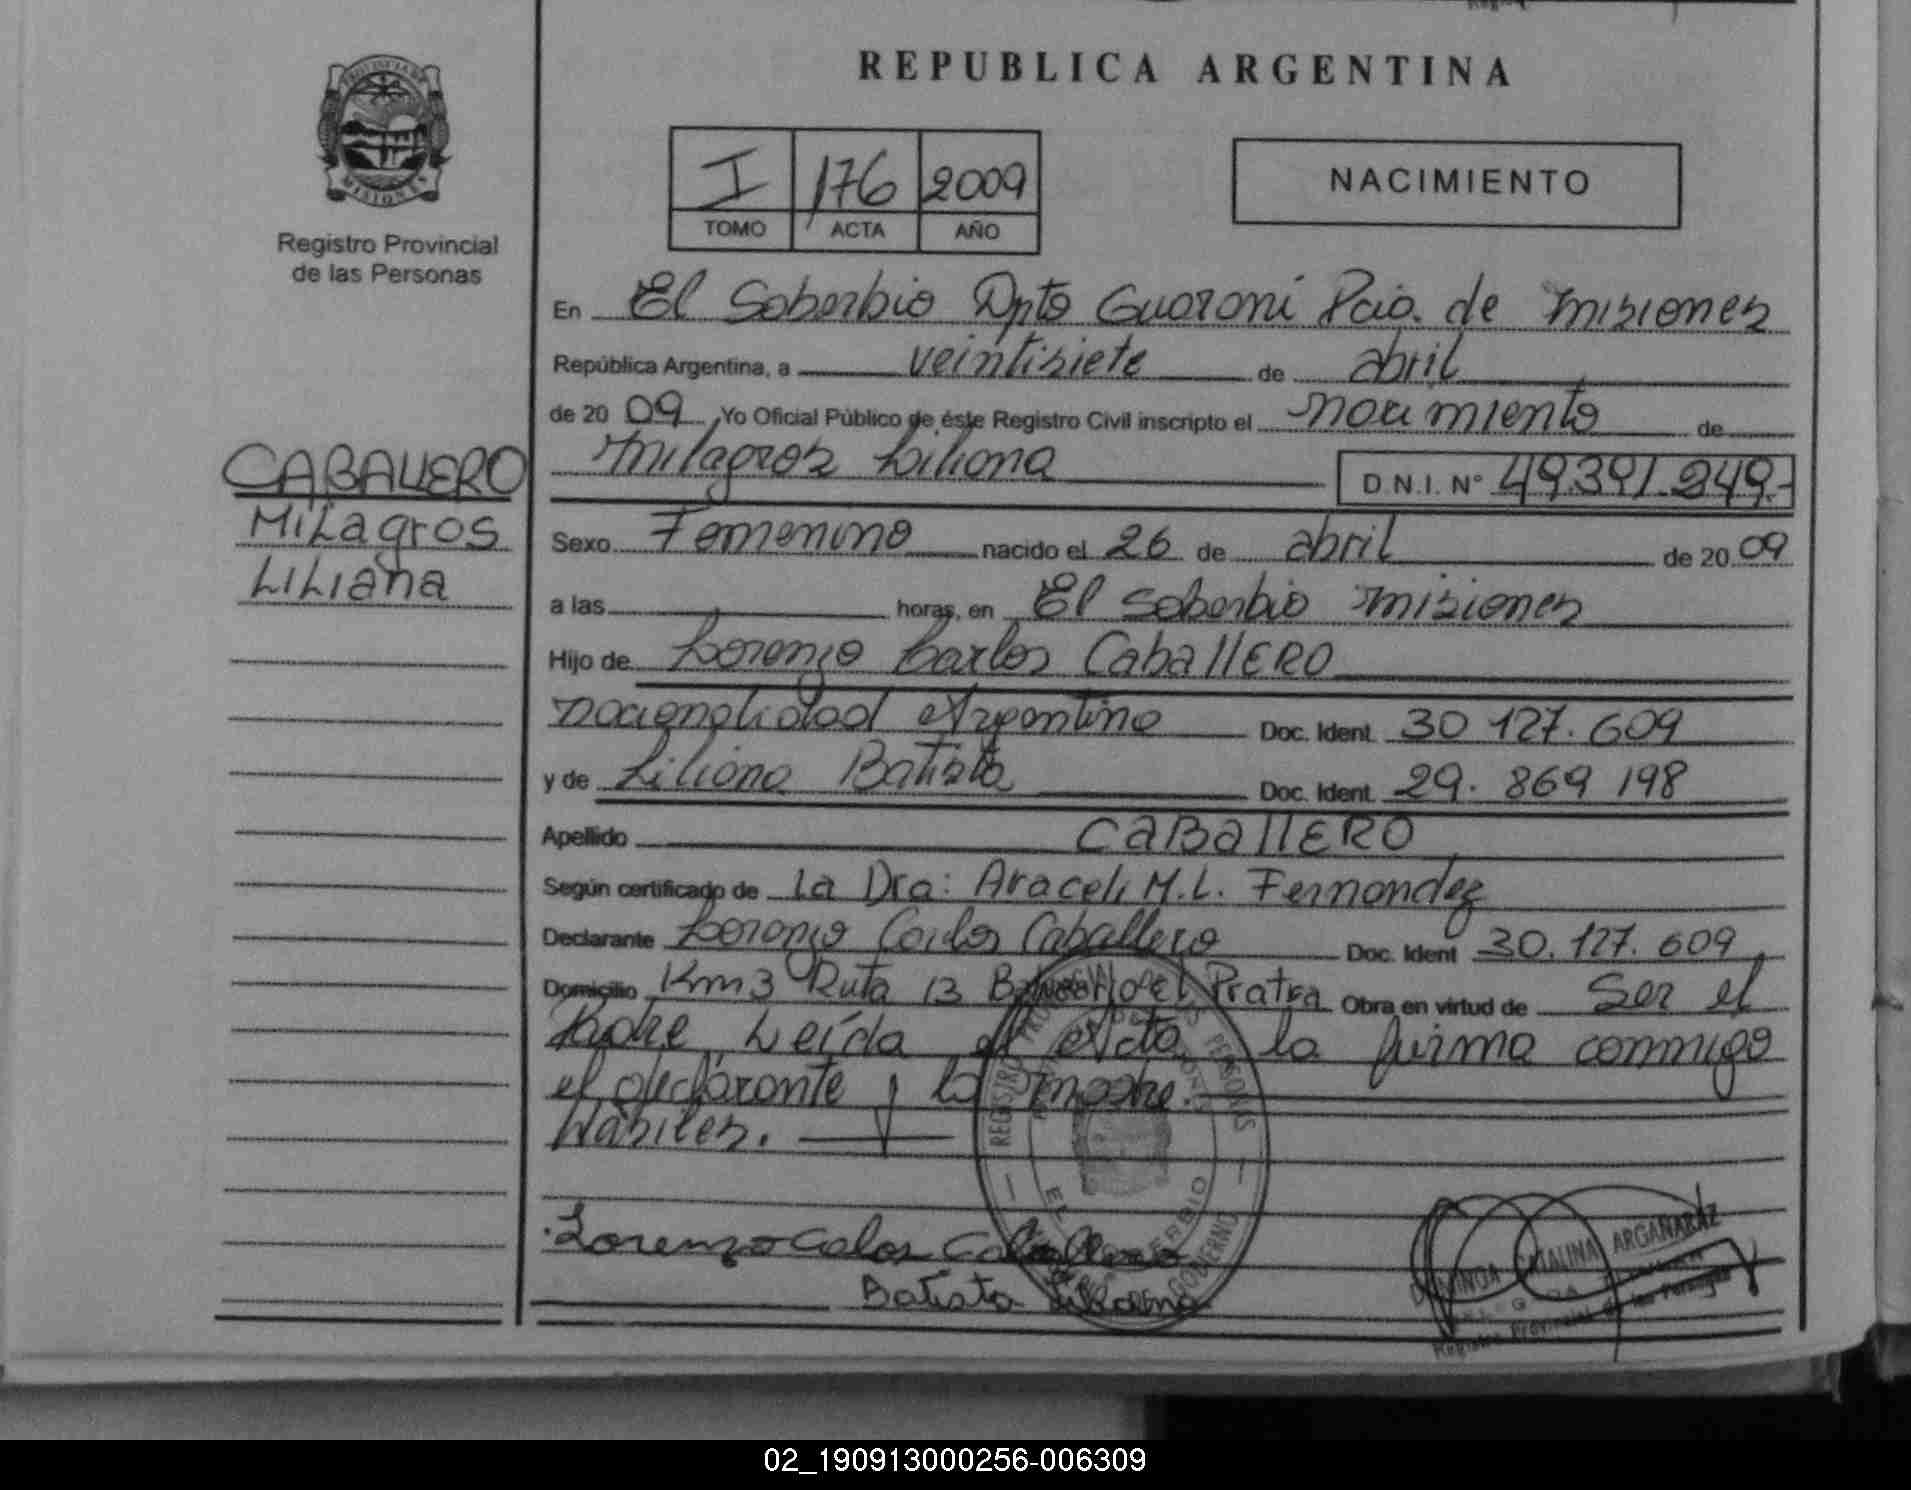 REPUBLICA ARGENTINA
PROVINCIA DE MISIONES
Registro Provincial
de las Personas
I 176 2009
TOMO ACTA AÑO
NACIMIENTO
CABALLERO
MiLagros
LiLiana
En El Soberbio Dpto Guaraní Pcia. de Misiones
República Argentina, a veintisiete de abril
de 2009 Yo Oficial Público de éste Registro Civil inscripto el nacimiento de
Milagros Liliana D.N.I. N° 49.391.249.-
Sexo Femenino nacido el 26 de abril de 2009
a las horas, en El Soberbio Misiones
Hijo de Lorenzo Carlos CaballERO
nacionalidad Argentino Doc. Ident. 30 127.609
y de Liliana Batista Doc. Ident. 29.869 198
Apellido CABAllERO
Según certificado de La Dra: Araceli M.L. Fernandez
Declarante Lorenzo Carlos Caballero Doc. Ident 30.127.609
Domicilio Km3 Ruta 13 Obra en virtud de Ser el
Padre Leída el Acta la firma conmigo
el declarante y la madre.
Hábiles.
Lorenzo Calos Caballero
Batista Liliana
REGISTRO PROVINCIAL DE LAS PERSONAS
EL SOBERBIO
GOBIERNO
CATALINA ARGAÑARAZ
Registro Provincial de las Personas
02_190913000256-006309